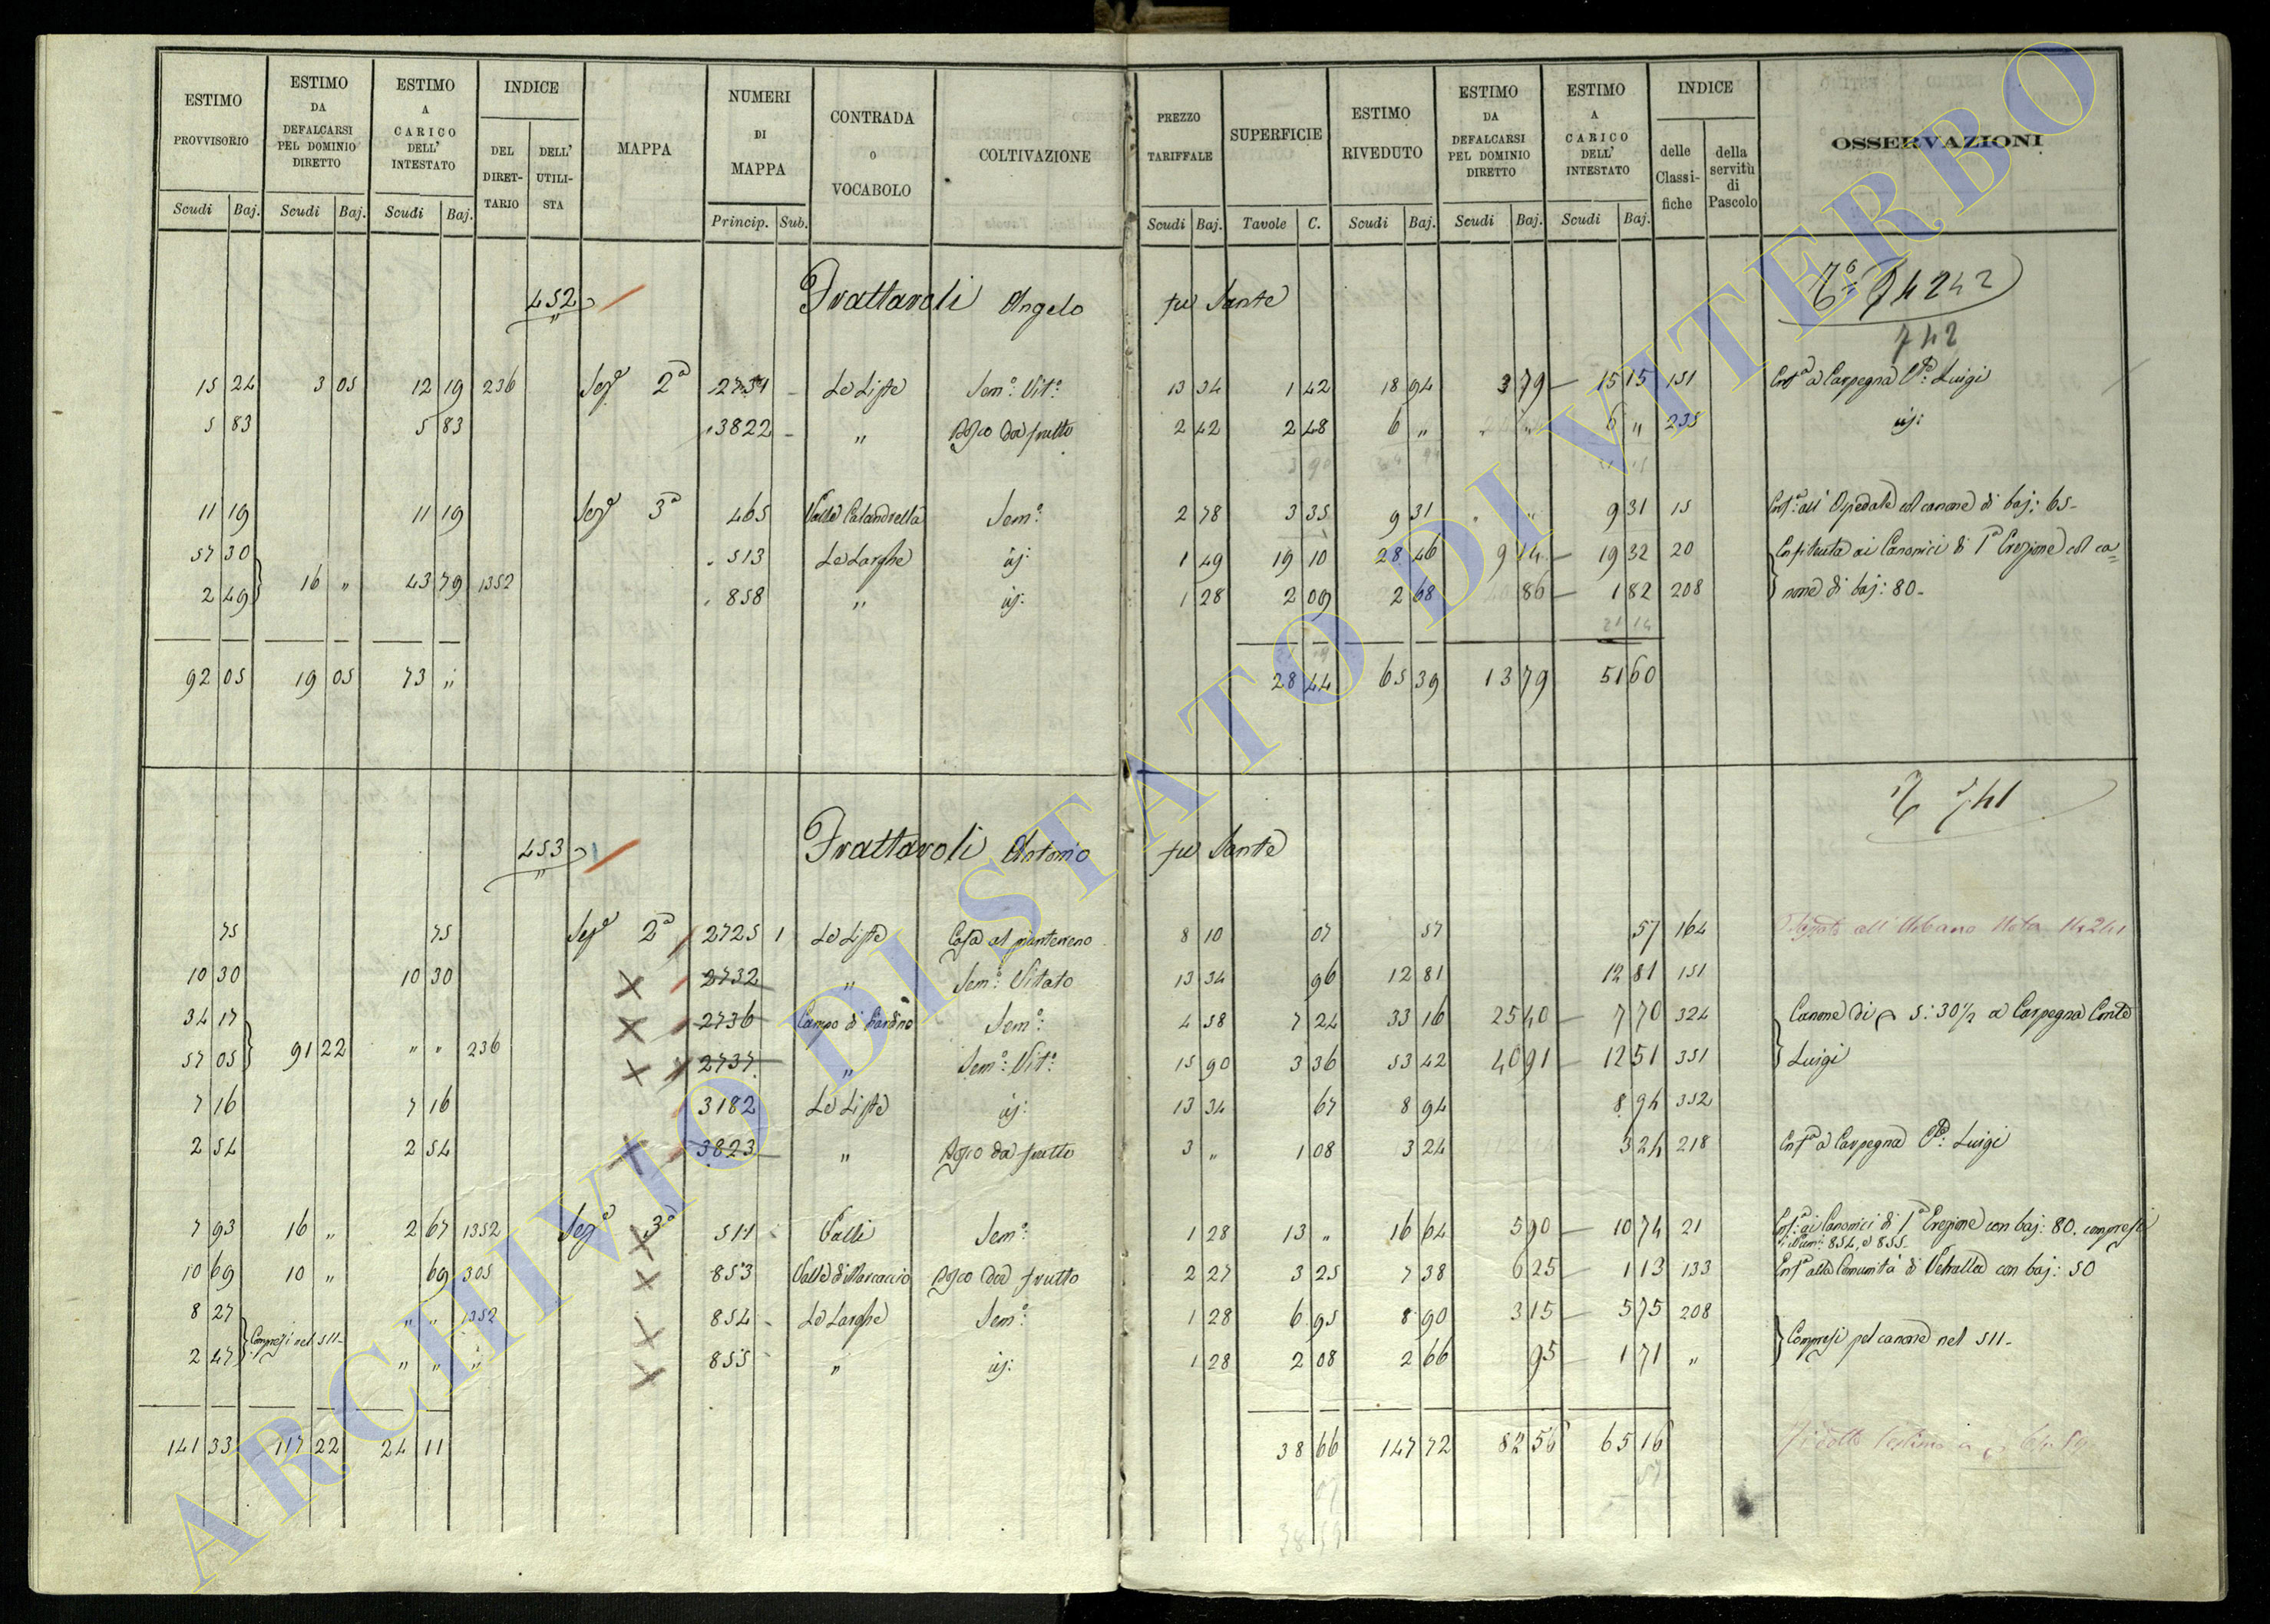 ESTIMO PROVVISORIO | ESTIMO DA DEFALCARSI PEL DOMINIO DIRETTO | ESTIMO A CARICO DELL' INTESTATO | INDICE DEL DIRETTARIO | DELL' UTILISTA | MAPPA | NUMERI DI MAPPA | CONTRADA O VOCABOLO | COLTIVAZIONE | PREZZO TARIFFALE | SUPERFICIE | ESTIMO RIVEDUTO | ESTIMO DA DEFALCARSI PEL DOMINIO DIRETTO | ESTIMO A CARICO DELL' INTESTATO | INDICE delle Classifiche | della servitù di Pascolo | OSSERVAZIONI
Scudi Baj. | Scudi Baj. | Scudi Baj. | Princip. Sub. | Scudi Baj. | Tavole C. | Scudi Baj. | Scudi Baj. | Scudi Baj.
452 Frattaroli Angelo fu Sante 74242
742
15 24 | 3 05 | 12 19 | 236 | Seze 2a | Le Liste | Semo: Vito: | 13 34 | 1 42 | 18 94 | 3 79 | 15 15 | 151 | Enfa a Carpegna Luigi
5 83 | 5 83 | 3822 | „ | Bosco da frutto | 2 42 | 2 48 | 6 „ | „ „ | 6 „ | 235 | id:
11 19 | 11 19 | Sezе 3a | 465 | Valle Calandrella | Semo: | 2 78 | 3 35 | 9 31 | „ „ | 9 31 | 15 | Enfa: all' Ospedale col canone di baj: 65-
57 30 | 513 | Le Larghe | id: | 1 49 | 19 10 | 28 46 | 9 14 | 19 32 | 20 | Enfiteuta ai Canonici di 1a Erezione col ca=
2 49 | 16 „ | 43 79 | 1352 | 858 | „ | id: | 1 28 | 2 09 | 2 68 | 86 | 1 82 | 208 | none di baj: 80-
21 14
92 05 | 19 05 | 73 „ | 28 44 | 65 39 | 13 79 | 51 60
741
453 Frattaroli Antonio fu Sante
75 | 75 | Sezе 2a | 2725 1 | Le Liste | Casa al pianterreno | 8 10 | 07 | 57 | 57 | 164 | all' Urbano Nota 14241
10 30 | 10 30 | 2732 | „ | Semo: Vitato | 13 34 | 96 | 12 81 | 12 81 | 151
34 17 | 2736 | Campo di Giardino | Semo: | 4 58 | 7 24 | 33 16 | 25 40 | 7 70 | 324 | Canone di 5:30½ a Carpegna Conte
57 05 | 91 22 | „ „ | 236 | 2737 | „ | Semo: Vito: | 15 90 | 3 36 | 53 42 | 40 91 | 12 51 | 351 | Luigi
7 16 | 7 16 | 3182 | Le Liste | id: | 13 34 | 67 | 8 94 | 8 94 | 352
2 54 | 2 54 | 3823 | „ | Bosco da frutto | 3 „ | 1 08 | 3 24 | 3 24 | 218 | Enfa a Carpegna Luigi
7 93 | 16 „ | 2 67 | 1352 | Sezе 3a | 511 | Valli | Semo: | 1 28 | 13 „ | 16 64 | 5 90 | 10 74 | 21 | Enfa: ai Canonici di 1a Erezione con baj: 80. compresi
i Num: 854, e 855-
10 69 | 10 „ | 69 | 305 | 853 | Valle di Marcaccio | Bosco da frutto | 2 27 | 3 25 | 7 38 | 6 25 | 1 13 | 133 | Enfa alla Comunità di Vetralla con baj: 50
8 27 | Compresi nel 511- | „ „ | 1352 | 854 | Le Larghe | Semo: | 1 28 | 6 95 | 8 90 | 3 15 | 5 75 | 208 | Compresi pel canone nel 511-
2 47 | „ „ | „ | 855 | „ | id: | 1 28 | 2 08 | 2 66 | 95 | 1 71 | „
141 33 | 117 22 | 24 11 | 38 66 | 147 72 | 82 56 | 65 16
57
ARCHIVIO DI STATO DI VITERBO